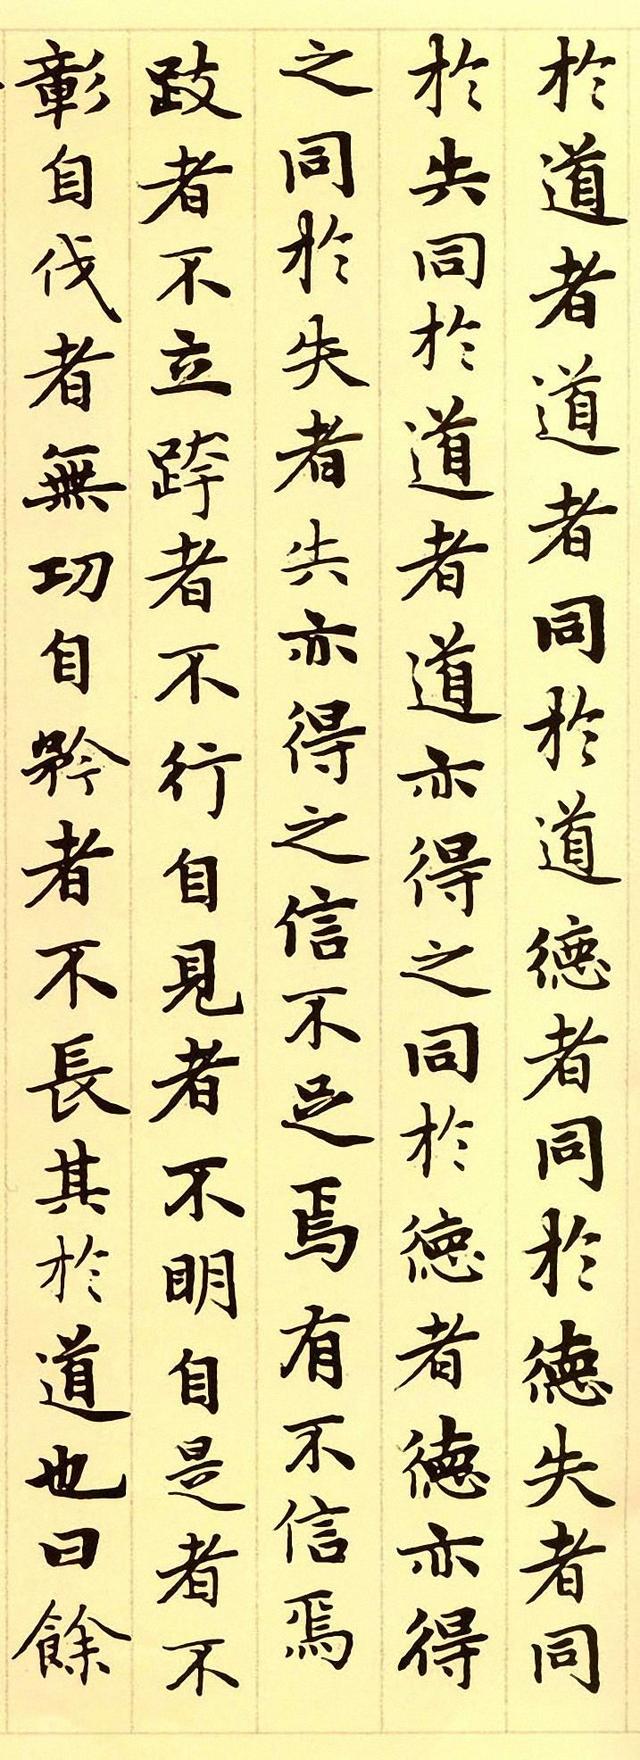 於道者道者同於道德者同於德失者同
於失同於道者道亦得之同於德者德亦得
之同於失者失亦得之信不足焉有不信焉
跂者不立跨者不行自見者不明自是者不
彰自伐者無功自矜者不長其於道也曰餘